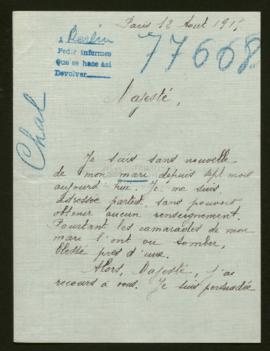 Paris 12 Août 191
a Berlin
Pedir informes
Que se hace así
Devolver
77668
Chal
Majesté,
Je suis sans nouvelle
de mon mari depuis sept mois
aujourd'hui. Je me suis
adressée partout, sans pouvoir
obtenir aucun renseignement.
Pourtant les camarades de mon
mari l'ont vu tomber,
blessé près d'eux.
Alors, Majesté, j'ai
recours à vous. Je suis persuadée